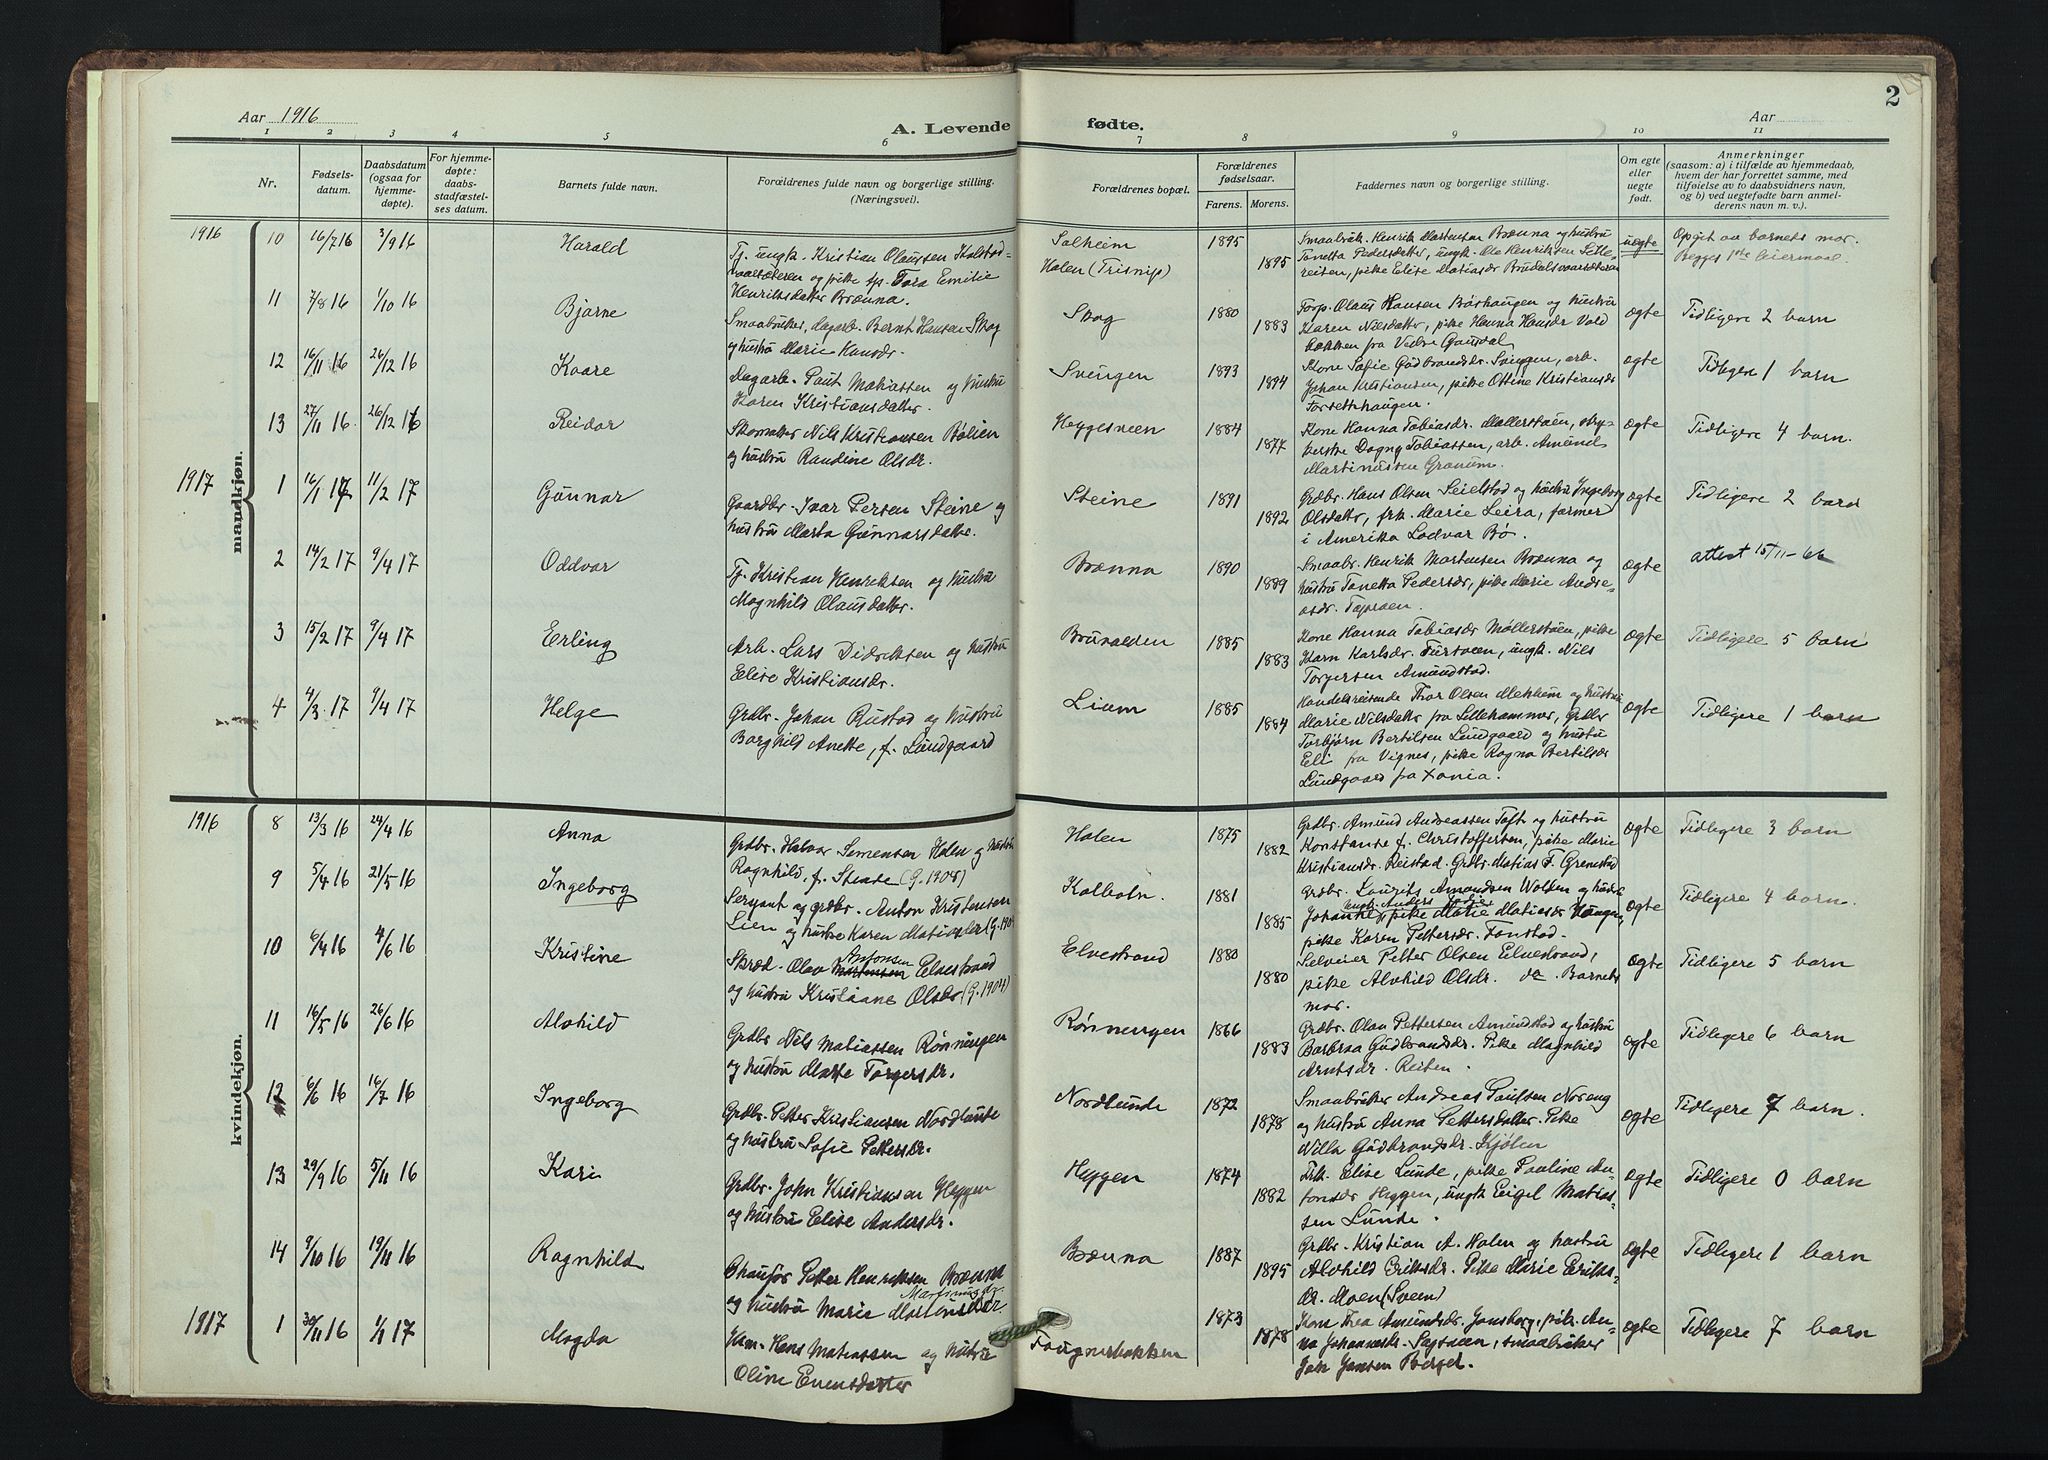 Aar 1916
A. Levende
fødte.
2
Aar
1 2 3 4 5 6 7 8 9 10 11
Nr.
Fødsels-
datum.
Daabsdatum
(ogsaa for
hjemme-
døpte).
For hjemme-
døpte:
daabs-
stadfæstel-
ses datum.
Barnets fulde navn.
Forældrenes fulde navn og borgerlige stilling.
(Næringsvei).
Forældrenes bopæl.
Forældrenes
fødselsaar.
Farens. Morens.
Faddernes navn og borgerlige stilling.
Om egte
eller
uegte
født.
Anmerkninger
(saasom: a) i tilfælde av hjemmedaab,
hvem der har forrettet samme, med
tilføielse av to daabsvidners navn,
og b) ved uegtefødte barn anmel-
derens navn m. v.).
mandkjøn.
1916 10 16/7 16 3/9 16 Harald
Tj. ungk. Kristian Olaussen Kalstad-
vaalsæteren og pike sp. Tora Emilie
Henriksdatter Brænna.
Solheim
Holen (Trisnip)
1895
1895
Smaabruk. Henrik Martensen Brænna og hustru
Tonetta Pedersdatter, ungk. Ole Henriksen Sletle-
reiten, pike Elise Matiasdr
uegte
Opgit av barnets mor.
Begges 1ste leiermaal.
11 7/8 16 1/10 16 Bjarne
Smaabruker, dagarb. Bernt Hansen Skog
og hustru Marie Hansdr.
Skog
1880
1883
Forp. Olaus Hansen Børshaugen og hustru
Karen Nilsdatter, pike Hanna Hansdr Vold
bakken fra Vestre Gausdal
ægte
Tidligere 2 barn
12 16/11 16 26/12 16 Kaare
Dagarb. Paul Matiassen og hustru
Karen Kristiansdatter.
Svingen
1893
1894
Kone Sofie Gudbrandsdr. Svingen, arb.
Johan Kristiansen, pike Ottine Kristiansdr
Forsethaugen.
ægte
Tidligere 1 barn
13 27/11 16 26/12 16 Reidar
Skomaker Nils Kristiansen Bølien
og hustru Randine Olsdr.
Heggesveen
1884
1877
Kone Hanna Tobiasdr. Møllerstuen, stry-
kerske Dagny Tobiassen, arb. Amund
Martinussen Granum.
ægte
Tidligere 4 barn.
1917 1 16/1 17 11/2 17 Gunnar
Gaardbr. Ivar Persen Steine og
hustru Marta Gunnarsdatter.
Steine
1891
1892
Grdbr. Hans Olsen Seielstad og hustru Ingeborg
Olsdatter, frk. Marie Leira, farmer
i Amerika Lodvar Bø.
ægte
Tidligere 2 barn
2 14/2 17 9/4 17 Oddvar
Tj. Kristian Henriksen og hustru
Magnhild Olausdatter.
Brænna
1890
1889
Smaabr. Henrik Martensen Brænna og
hustru Tonetta Pedersdr, pike Marie Andre-
asdr.
ægte
attest 15/11-66
3 15/2 17 9/4 17 Erling
Arb. Lars Didriksen og hustru
Elise Kristiansdr.
Brunalden
1885
1883
Kone Hanna Tobiasdr Møllerstuen, pike
Karn Karlsdr. Furtveen, ungk. Nils
Torgersen Amundstad.
ægte
Tidligere 5 barn
4 4/3 17 9/4 17 Helge
Grdbr. Johan Rustad og hustru
Borghild Anette, f. Lundgaard
Lium
1885
1884
Handelsreisende Thor Olsen Mekkem og hustru
Marie Nilsdatter fra Lillehammer, Grdbr
Torbjørn Bertilsen Lundgaard og hustru
Eli fra Vignes, pike Ragna Bertilsdr
Lundgaard fra Xania.
ægte
Tidligere 1 barn
kvindekjøn.
1916 8 13/3 16 24/4 16 Anna
Grdbr. Halvor Simensen Holen og hustru
Ragnhild, f. Steade (G. 1908)
Holen
1875
1882
Grdbr. Amund Andreassen Toft og hustru
Konstanse f. Christoffersen, pike Marie
Kristiansdr. Reistad. Grdbr. Matias F. Grønstad
ægte
Tidligere 3 barn
9 5/4 16 21/5 16 Ingeborg
Sersjant og grdbr. Anton Kristensen
Lien og hustru Karen Matiasdr (G. 190
Kalholn
1881
1885
Grdbr. Laurits Amundsen Wolden og hustru
Johanne, ungk. Anders, pike Marie Matiasdr Haugen,
pike Karen Pettersdr. Fonstad.
ægte
Tidligere 4 barn.
10 6/4 16 4/6 16 Kristine
Skræd. Olav Antonsen Elvestrand
og hustru Kristiane Olsdr (G. 1904)
Elvestrand
1880
1880
Selveier Petter Olsen Elvestrand,
pike Alvhild Olsdr. do. Barnets
mor.
ægte
Tidligere 5 barn
11 16/5 16 26/6 16 Alvhild
Grdbr Nils Matiassen Rønningen
og hustru Marte Torgersdr.
Rønningen
1866
1883
Grdbr. Olav Pettersen Amundstad og hustru
Barbraa Gudbrandsdr. Pike Magnhild
Arntsdr. Reiten.
ægte
Tidligere 6 barn
12 6/6 16 16/7 16 Ingeborg
Grdbr. Petter Kristiansen Nordlunde
og hustru Sofie Pettersdr.
Nordlunde
1872
1878
Smaabruker Andreas Paulsen Noreng
og hustru Anna Pettersdatter. Pike
Nilla Gudbrandsdr. Kjølen
ægte
Tidligere 7 barn.
13 29/9 16 5/11 16 Kari
Grdbr. John Kristiansen Heggen
og hustru Elise Andersdr.
Heggen
1874
1882
Frk. Elise Lunde, pike Pauline An-
tonsdr Heggen, ungk. Eigel Matias-
sen Lunde.
ægte
Tidligere 0 barn
14 9/10 16 19/11 16 Ragnhild
Chaufør Petter Henriksen Brænna
og hustru Marie Martinusdr.
Brænna
1887
1895
Grdbr. Kristian A. Holen og hustru
Alvhild Eriksdr. Pike Marie Eriks-
dr. Moen (Sveen)
ægte
Tidligere 1 barn
1917 1 30/11 16 1/1 17 Magda
Hans Matiassen og hustru
Oline Evensdatter
Faugnerbakken
1873
1878
Kone Thea Amundsdr. Jonsborg, pike An-
na Johannesdr. Sagsveen, smaabruker
Joh. Jansen Bergel.
ægte
Tidligere 7 barn